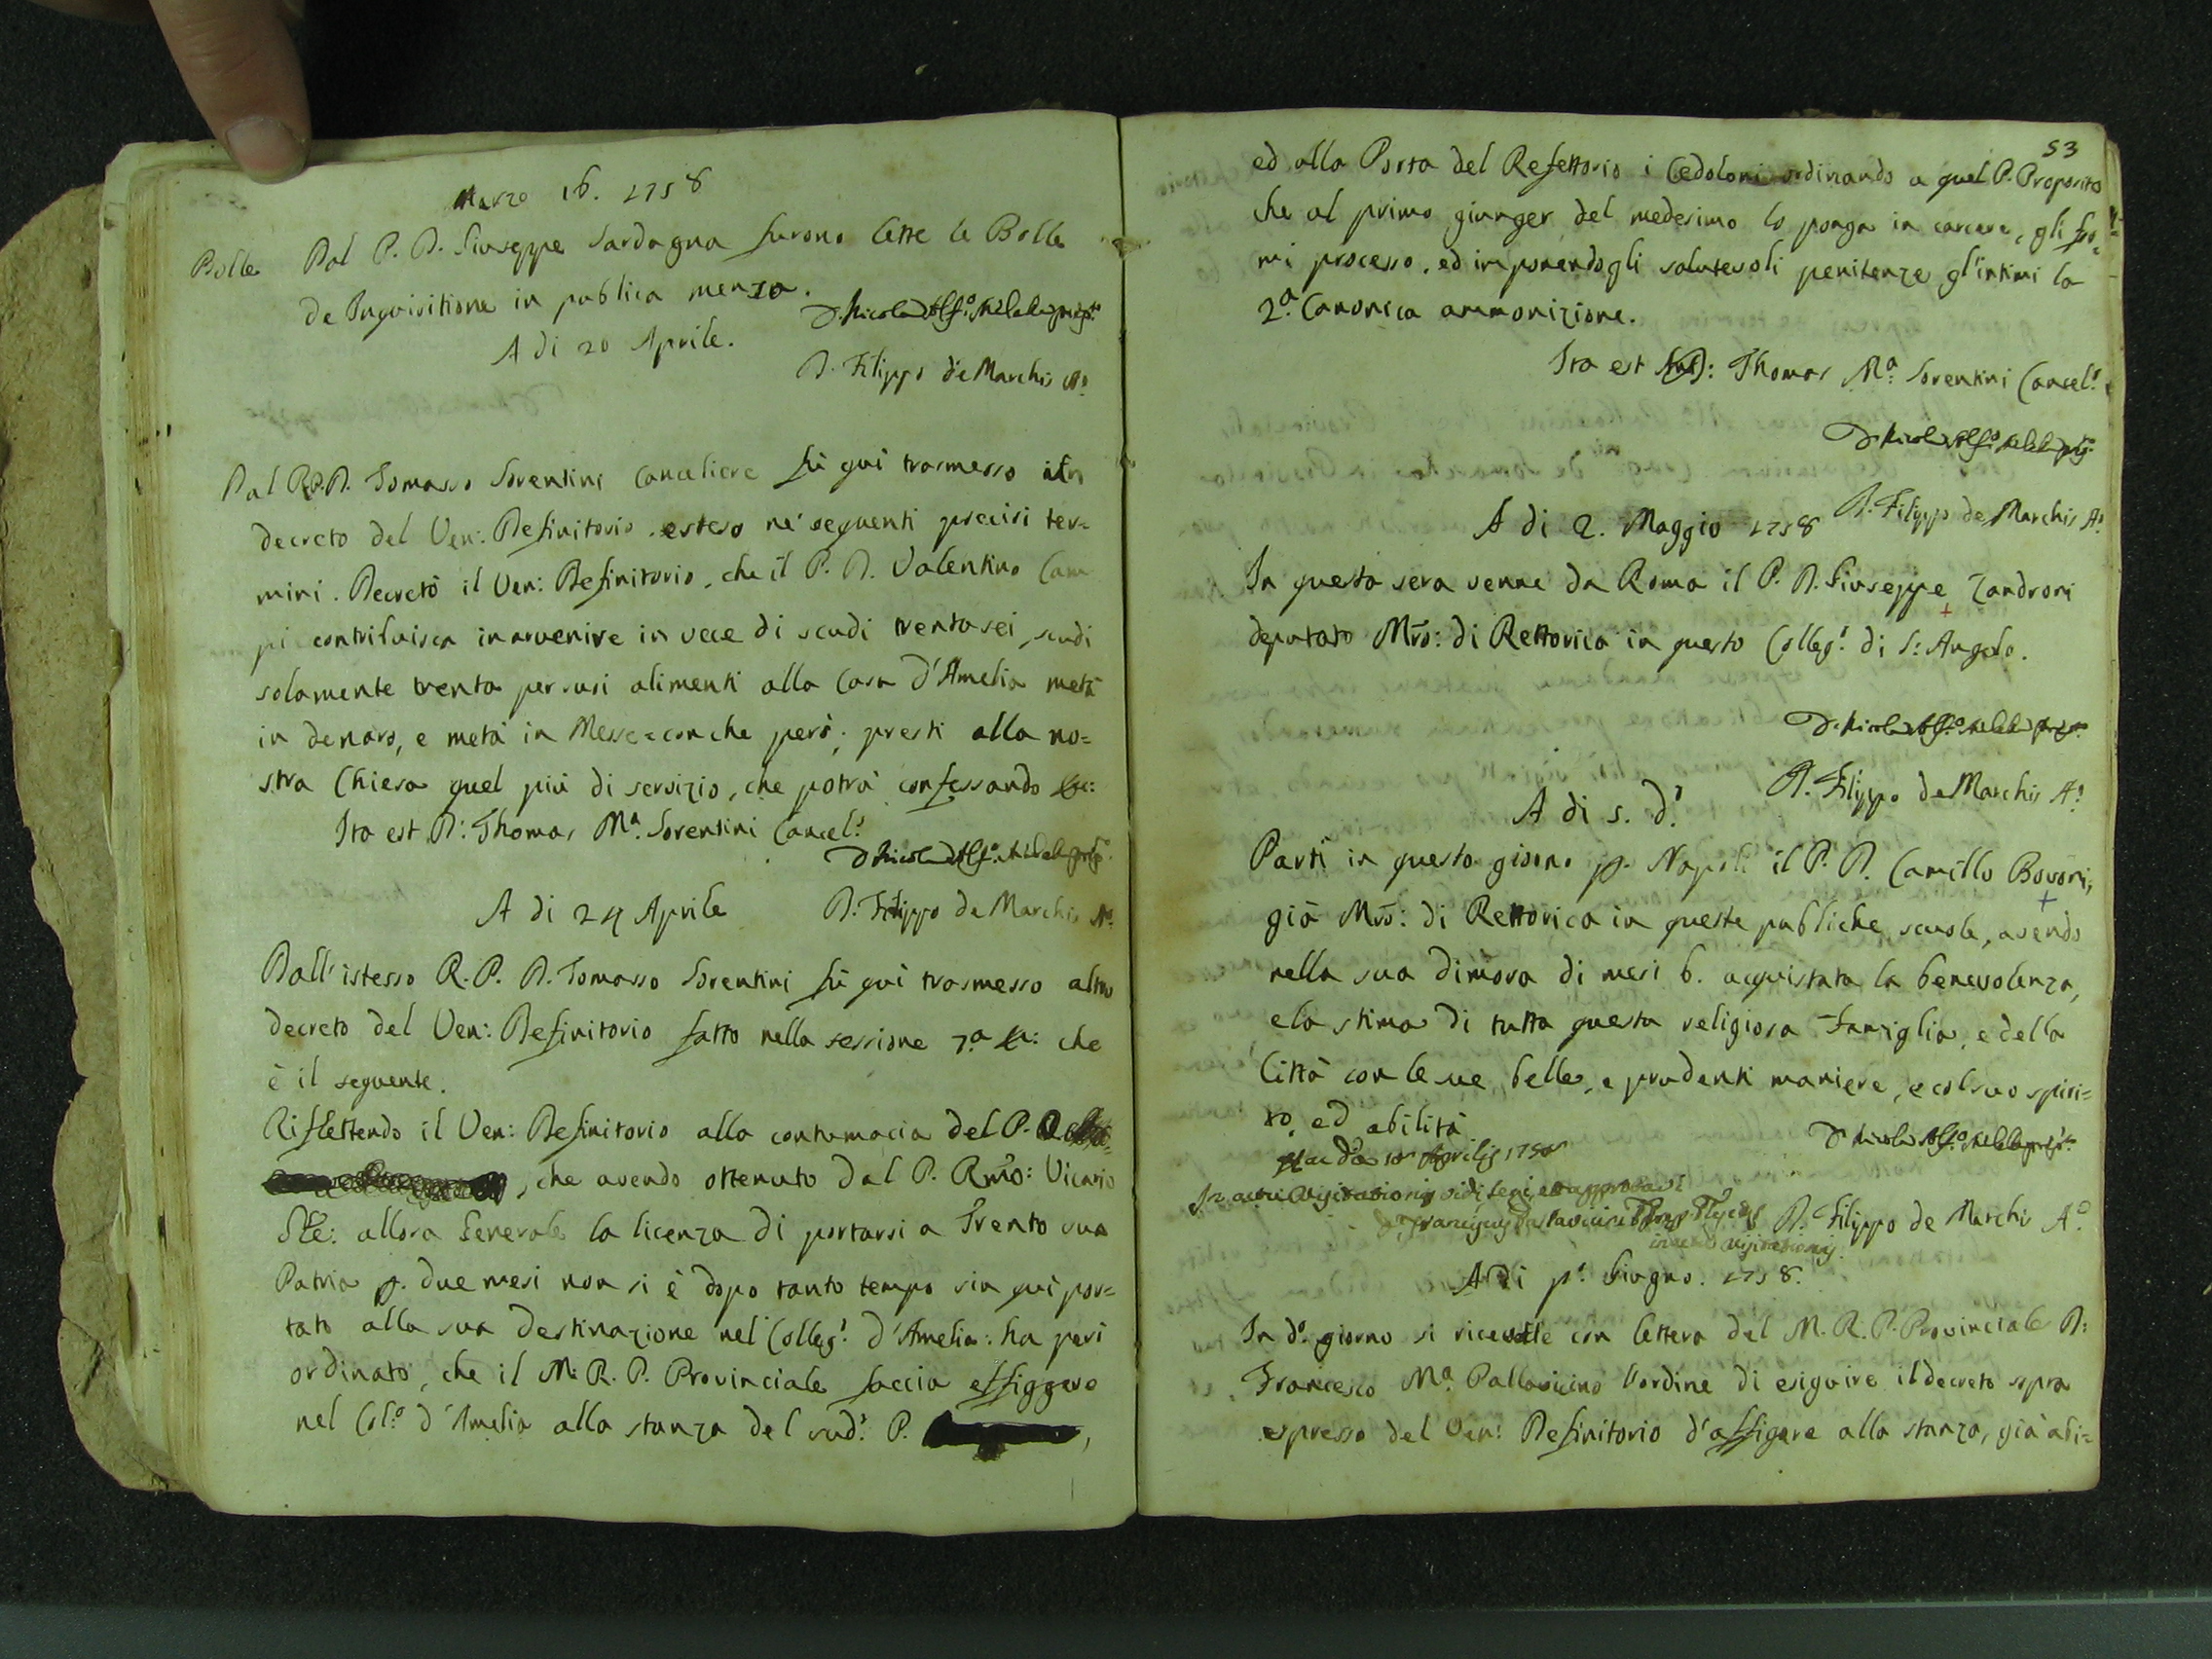 Marzo 16. 1758
Bolle Dal P. D. Giuseppe Sardagna furono lette le Bolle
de Inquisitione in publica mensa.
D. Nicola
A di 20 Aprile.
D. Filippo de Marchis A.º
Dal R.P.D. Tomaso Sorentini Canceliere fù qui trasmesso
decreto del Ven: Definitorio esteso ne' seguenti precisi ter=
mini. Decretò il Ven: Definitorio, che il P. D. Valentino Cam
pi contribuisca in avvenire in vece di scudi trentasei, scudi
solamente trenta per suoi alimenti alla Casa d'Amelia metà
in denaro, e metà in Messe = con che però, presti alla no=
stra Chiesa quel più di servizio, che potrà confessando &c:
Ita est D: Thomas M.ª Sorentini Cancel.s
D. Nicola
A di 24 Aprile D. Filippo de Marchis A.º
Dall'istesso R. P. D. Tomasso Sorentini fù qui trasmesso altro
decreto del Ven: Definitorio fatto nella sessione 7.ª &c: che
è il seguente.
Riflettendo il Ven: Definitorio alla contumacia del P. D.
, che avendo ottenuto dal P. Rmo: Vicario
Gle: allora Generale la licenza di portarsi a Trento sua
Patria p. due mesi non si è dopo tanto tempo sin qui por=
tato alla sua destinazione nel Colleg.º d'Amelia: ha perì
ordinato, che il M. R. P. Provinciale faccia affiggere
nel Col.º d'Amelia alla stanza del sud.º P. ,
53
ed alla Porta del Refettorio i Cedoloni ordinando a quel P. Proposito
che al primo giunger del medesimo lo ponga in carcere, gli for=
mi processo, ed imponendogli salutevoli penitenze gl'intimi la
2.ª Canonica ammonizione.
Ita est : Thomas M.ª Sorentini Cancel.s
D. Nicola
A di 2. Maggio 1758 D. Filippo de Marchis A.º
In questa sera venne da Roma il P. D. Giuseppe Zandroni
deputato Mrõ: di Rettorica in questo Colleg.º di S: Angelo.
D. Nicola
D. Filippo de Marchis A.º
A di 5. d.º
Partì in questo giorno p. Napoli il P. D. Camillo Bovoni,
già Mrõ: di Rettorica in queste publiche scuole, avendo
nella sua dimora di mesi 6. acquistata la benevolenza,
e la stima di tutta questa religiosa Famiglia, e della
Città con le sue belle, e prudenti maniere, e col suo spiri=
to, ed abilità
D. Nicola
die 18 Aprilis 1758
In actu Visitationis vidi legi et approbavi
D. Franciscus Pallavicini
in actu visitationis.
D. Filippo de Marchis A.º
A di p.º Giugno. 1758.
In d.º giorno si ricevette con lettera del M. R. P. Provinciale D:
Francesco M.ª Pallavicino l'ordine di esiguire il decreto sopra
espresso del Ven: Definitorio d'affigere alla stanza, già abi=